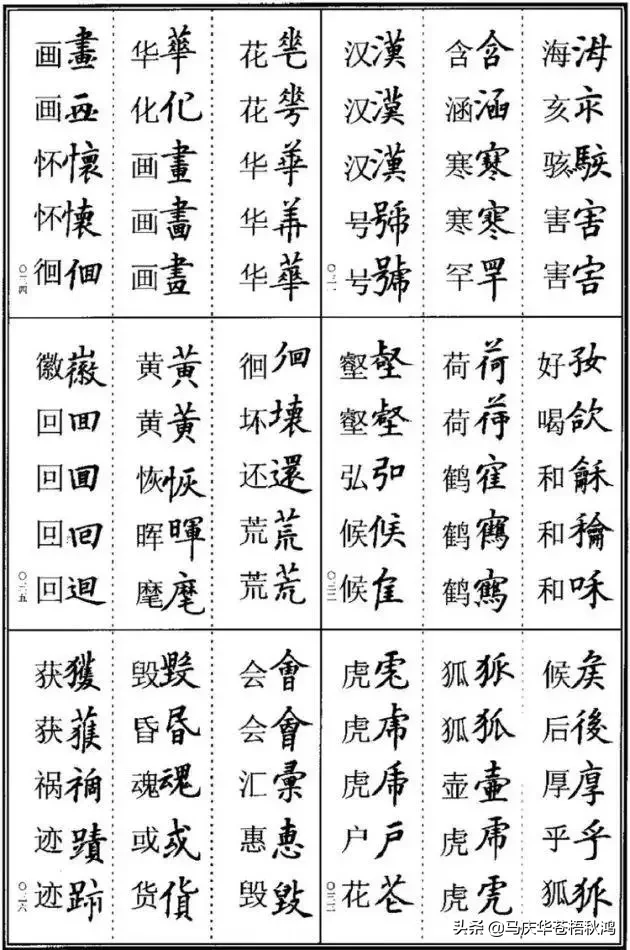 海
亥
骇駭
害害
害
含含
涵涵
寒寒
寒寒
罕罕
汉漢
汉漢
汉漢
号號
号號
〇二一
好㚥
喝欱
和龢
和
和咊
荷荷
荷荷
鹤寉
鹤鶴
鹤鶴
壑壑
壑壑
弘
候候
候隹
〇二二
候矦
后後
厚厚
乎乎
狐狐
狐狐
狐狐
壶壷
虎虎
虎虎
虎
虎虎
虎
户戶
花苍
〇二三
花
花
华華
华
华華
华華
化化
画畫
画
画畫
画畫
画
怀懷
怀懐
徊佪
〇二四
徊佪
坏壞
还還
荒荒
荒荒
黄黃
黄黄
恢恢
晖暉
麾麾
徽徽
回囬
回囬
回回
回迴
〇二五
会會
会會
汇彙
惠恵
毁毀
毁毀
昏昬
魂魂
或或
货貨
获獲
获
祸
迹蹟
迹跡
〇二六
头条 @马庆华苍梧秋鸿